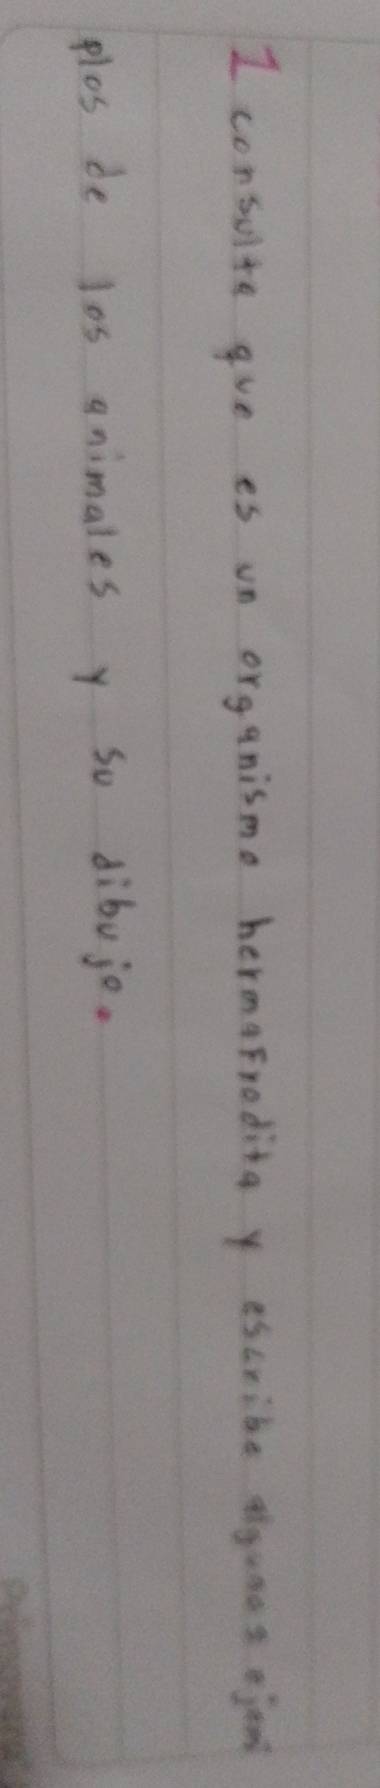 1 consulta que es un organismo hermaFrodita y escribe algunos ejem
plos de los animales y su dibujo.